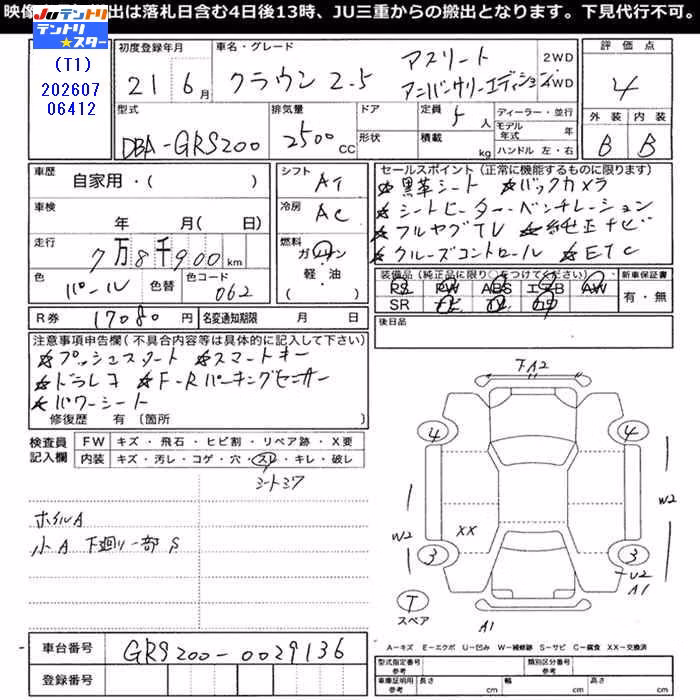 映像 出は落札日含む4日後13時、JU三重からの搬出となります。下見代行不可。
JUテントリ
テントリ★スター
(T1)
202607
06412
初度登録年月 車名・グレード 評価点
21 6月 クラウン 2.5 アスリート 2WD
アニバーサリーエディション 4WD
4
型式 排気量 ドア 定員 ディーラー・並行 外装 内装
DBA-GRS200 2500cc 形状 5人 積載 kg モデル年式 年 ハンドル 左・右 B B
車歴 自家用・( )
シフト AT
車検 年 月( 日)
冷房 AC
走行 7万8千900km
燃料 ガソリン・軽・油・( )
色 パール 色替 色コード 062
R券 17080円 名変通知期限 月 日
セールスポイント(正常に機能するものに限ります)
★黒革シート ★バックカメラ
★シートヒーター・ベンチレーション
★フルセグTV ★純正ナビ
★クルーズコントロール ★ETC
装備品(純正品に限り○をつけてください) 新車保証書
RS PW ABS エアB AW 有・無
SR ナビ TV カワ
後日品
注意事項申告欄(不具合内容等は具体的に記入して下さい)
★プッシュスタート ★スマートキー
★ドラレコ ★F・Rパーキングセンサー
★パワーシート
修復歴 有 〔箇所
検査員記入欄 FW キズ・飛石・ヒビ割・リペア跡・X要
内装 キズ・汚レ・コゲ・穴・スレ・キレ・破レ
シートシワ
ホイルA
小A 下廻り一部S
FA2
4 4
W2 W2
XX
3 3
U2
A1
T
スペア
A1
A-キズ E-エクボ U-凹み W-補修跡 S-サビ C-腐食 XX-交換済
車台番号 GRS200-0029136
登録番号
型式指定番号 参考 類別区分番号 参考
車庫証明用 参考 長さ cm 幅 cm 高さ cm